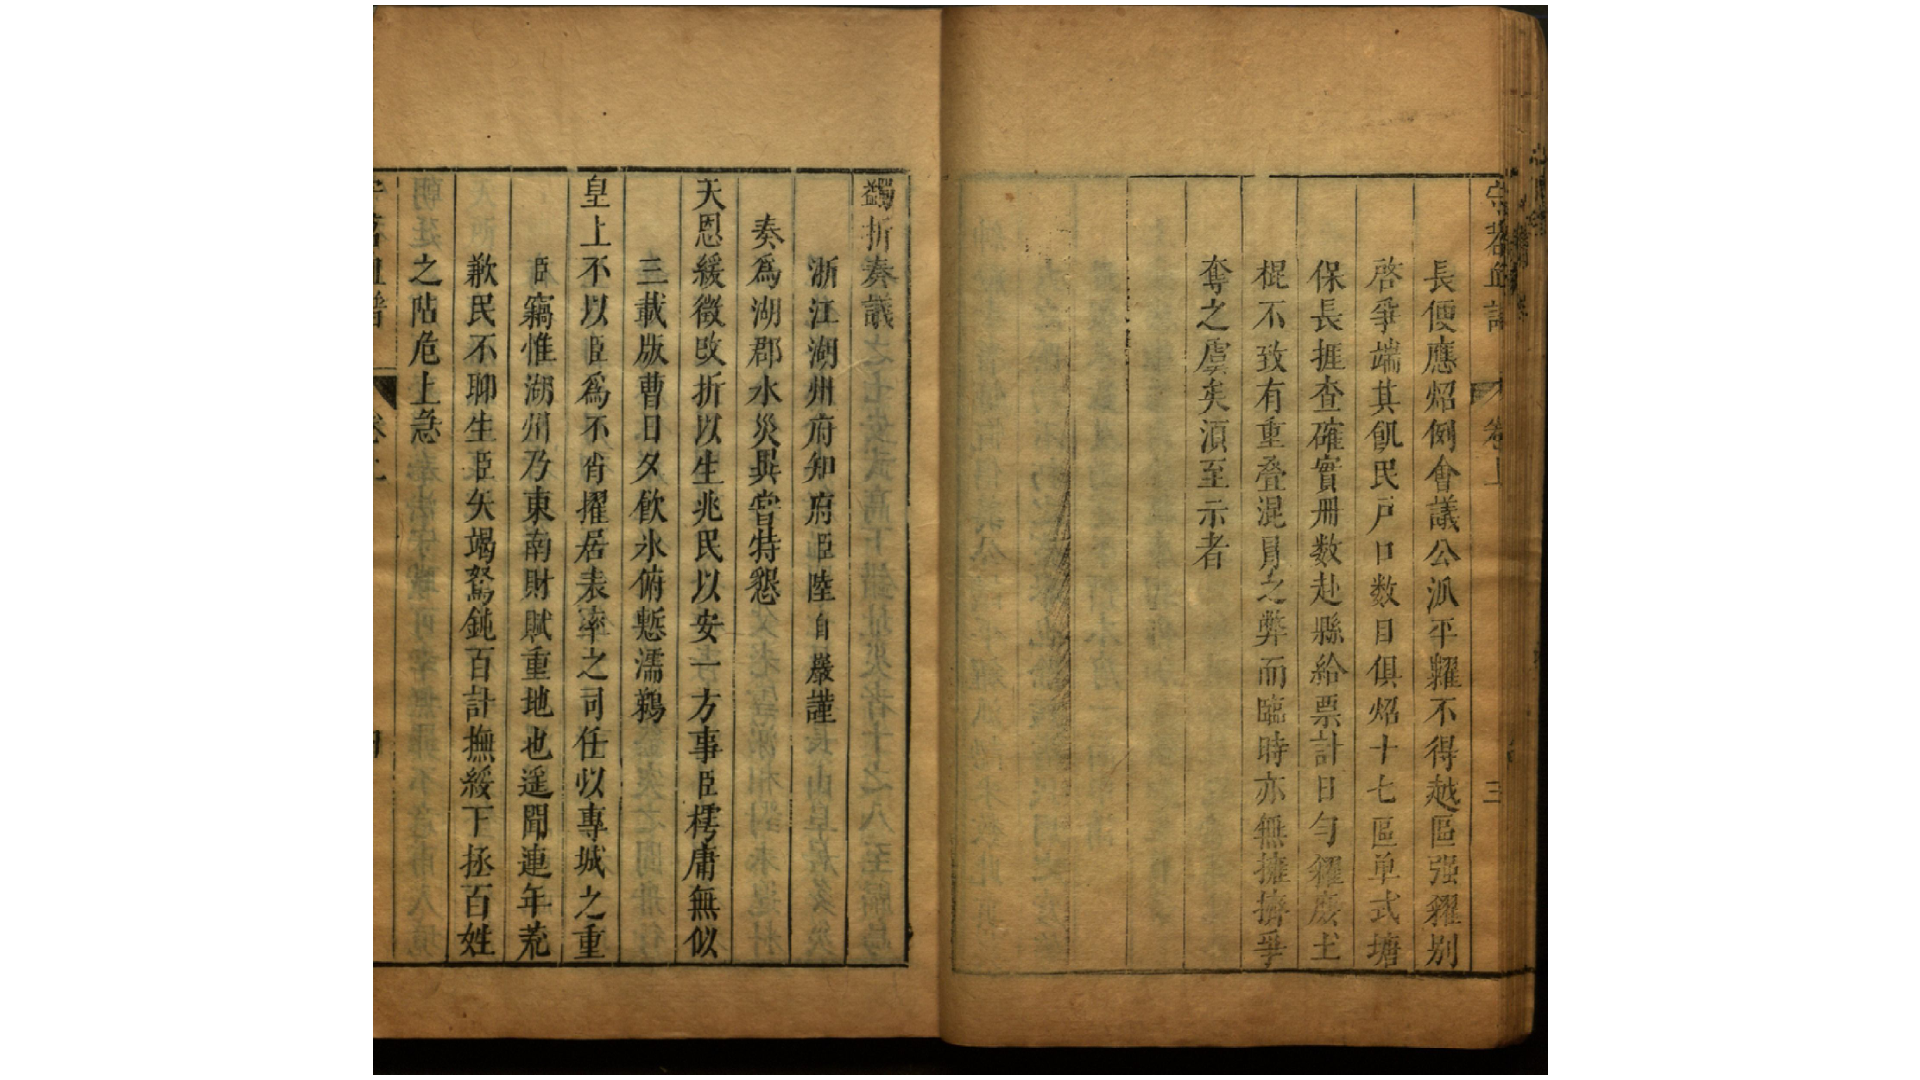 長便應炤例會議公派平糶不得越區强糴别
啓爭端其飢民戸口数目俱炤十七區单式塘
保長捱查確實冊数赴縣給票計日勻糴庶土
棍不致有重叠混冐之弊而臨時亦無擁擠爭
奪之虞矣湏至示者
蠲折奏議
浙江湖州府知府臣陸自巖謹
奏爲湖郡水災異嘗特懇
天恩緩徵改折以生兆民以安一方事臣樗庸無似
三載版曹日夕飲氷俯慙濡鵜
皇上不以臣爲不肖擢居表率之司任以專城之重
臣竊惟湖州乃東南財賦重地也遥聞連年荒
歉民不聊生臣矢竭駑鈍百計撫綏下拯百姓
之阽危上急